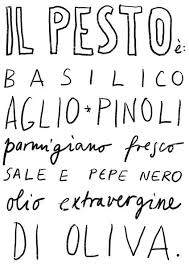 IL PESTO è:
BASILICO
AGLIO * PINOLI
parmigiano fresco
SALE E PEPE NERO
olio extravergine
DI OLIVA.